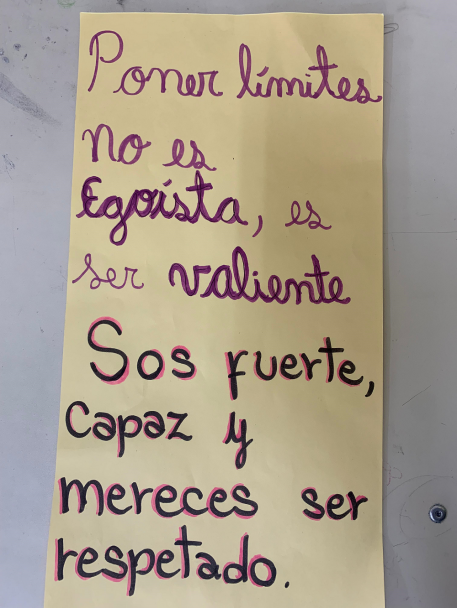 Poner límites
no es
Egoísta, es
ser valiente
Sos fuerte,
capaz y
mereces ser
respetado.